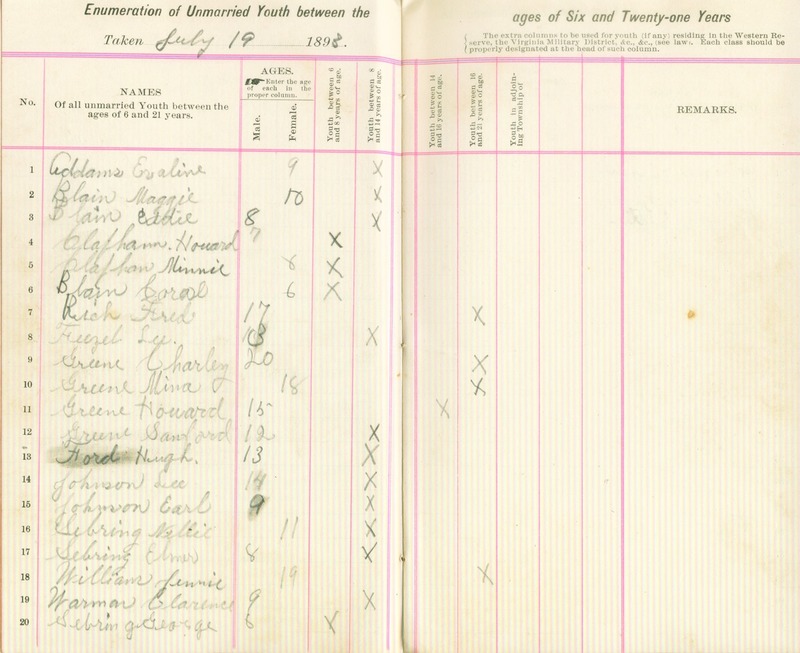 Enumeration of Unmarried Youth between the ages of Six and Twenty-one Years
Taken July 19 1898.
The extra columns to be used for youth (if any) residing in the Western Re-
serve, the Virginia Military District, &c., &c., (see law). Each class should be
properly designated at the head of such column.
No.
NAMES
Of all unmarried Youth between the
ages of 6 and 21 years.
AGES.
Enter the age
of each in the
proper column.
Male.
Female.
Youth between 6
and 8 years of age.
Youth between 8
and 14 years of age.
Youth between 14
and 16 years of age.
Youth between 16
and 21 years of age.
Youth in adjoin-
ing Township of
REMARKS.
1 Addams Evaline 9 X
2 Blain Maggie 10 X
3 Blain Eadie 8 X
4 Clapham. Howard 7 X
5 Clapham Minnie X
6 Blain 6 X
7 Rich Fred 17 X
8 Feezel Lee. 13 X
9 Greene Charley 20 X
10 Greene Mina 18 X
11 Greene Howard 15 X
12 Greene Sanford 12 X
13 Ford Hugh. 13 X
14 Johnson Lee 14 X
15 Johnson Earl 9 X
16 Sebring Nellie 11 X
17 Sebring Elmer 8 X
18 William Jennie 19 X
19 Warman Clarence 9 X
20 Sebring George 6 X